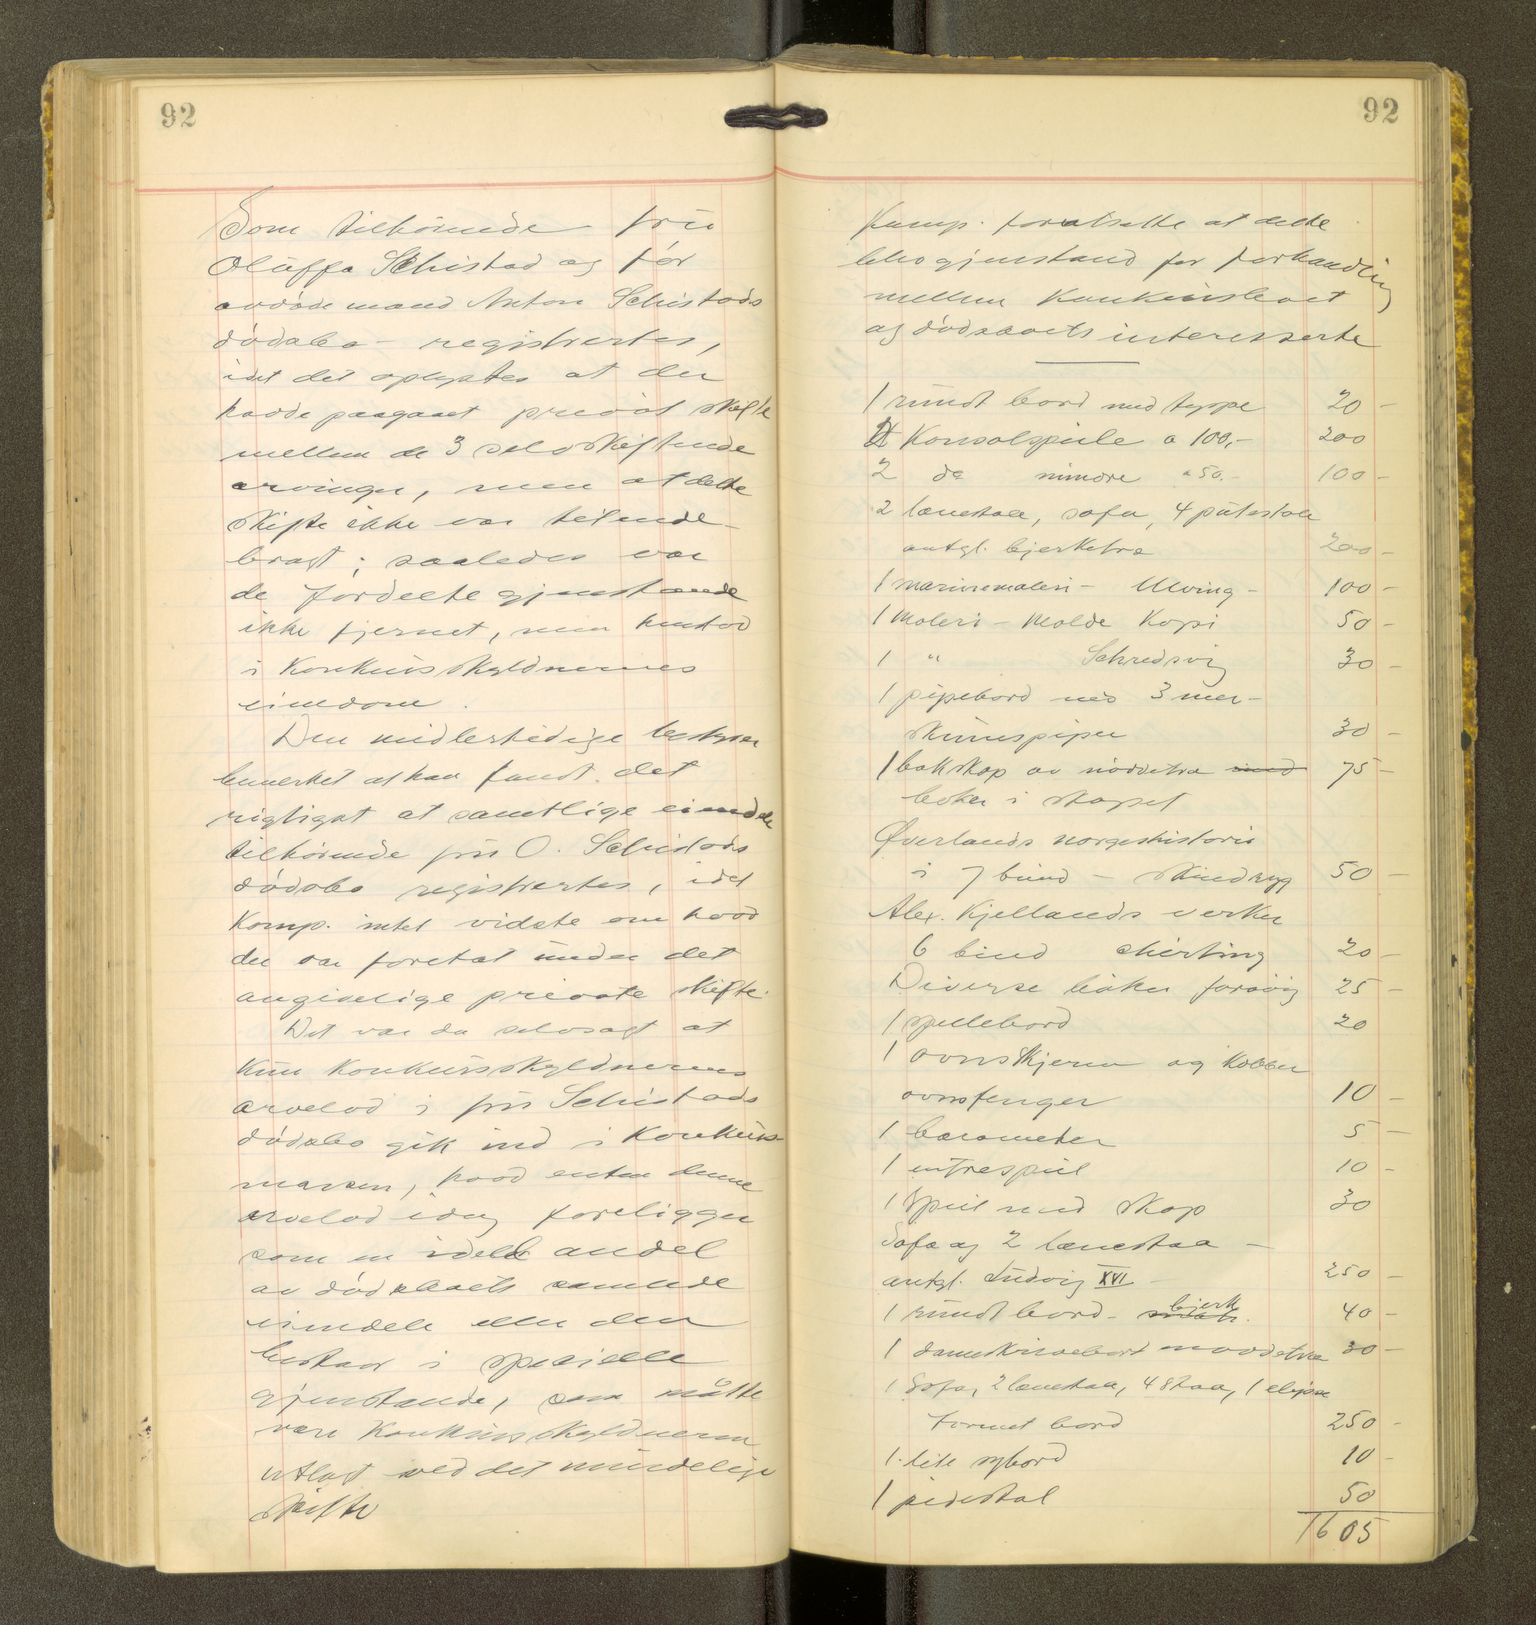 92
Som tilhørende fru
Oluffa Schistad og før
avdøde mand Anton Schistads
dødsbo registrertes,
idet det oplystes at der
havde paagaaet privat skifte
mellem de 3 selvskiftende
arvinger, men at dette
skifte ikke var tilende-
bragt; saaledes var
de fordelte gjenstande
ikke fjernet, men henstod
i konkursskyldnernes
eiendom.
Den midlertidige bestyrer
bemerket at han fandt det
rigtigst at samtlige eiendele
tilhørende fru O. Schistads
dødsbo registrertes, idet
Komp. intet vidste om hvad
der var foretat under det
angivelige private skifte.
Det var da selvsagt at
kun konkursskyldnerens
arvelod i fru Schistads
dødsbo gik ind i konkurs-
massen, hvad enten denne
arvelod idag foreligger
som en ideel andel
av dødsboets samlede
eiendele eller den
bestaar i specielle
gjenstande, som måtte
være konkursskyldneren
utlagt ved det mindelige
skifte
92
Komp. forutsatte at dette
blev gjenstand for forhandling
mellem konkursboet
og dødsboets interesserte
1 rundt bord med teppe 20 -
2 Konsolspeile a 100,- 200
2 do mindre a 50.- 100 -
2 lænestole, sofa, 4 putestole
antgl. bjerketræ 200 -
1 marinemaleri - Ulving - 100 -
1 maleri - Molde Kopi 50 -
1 " Schredsvig 30 -
1 pipebord med 3 mer-
skumspiper 30 -
1 bokskap av nøddetræ med 75 -
bøker i skapet
Øverlands norgeshistorie
i 7 bind - skindryg 50 -
Alex. Kjellands verker
6 bind shirting 20 -
Diverse bøker forøvrig 25 -
1 spillebord 20
1 ovnskjerm og kobber
ovnsfenger 10 -
1 barometer 5 -
1 entrespeil 10 -
1 speil med skap 30
Sofa og 2 lænestoa -
antgl. Ludvig XVI - 250 -
1 rundt bord - bjerk. 40 -
1 dameskrivebord nøddetræ 30 -
1 Sofa, 2 lænestoa, 4 stoa, 1 elipse
formet bord 250 -
1 lite sybord 10 -
1 pidestal 50
1605